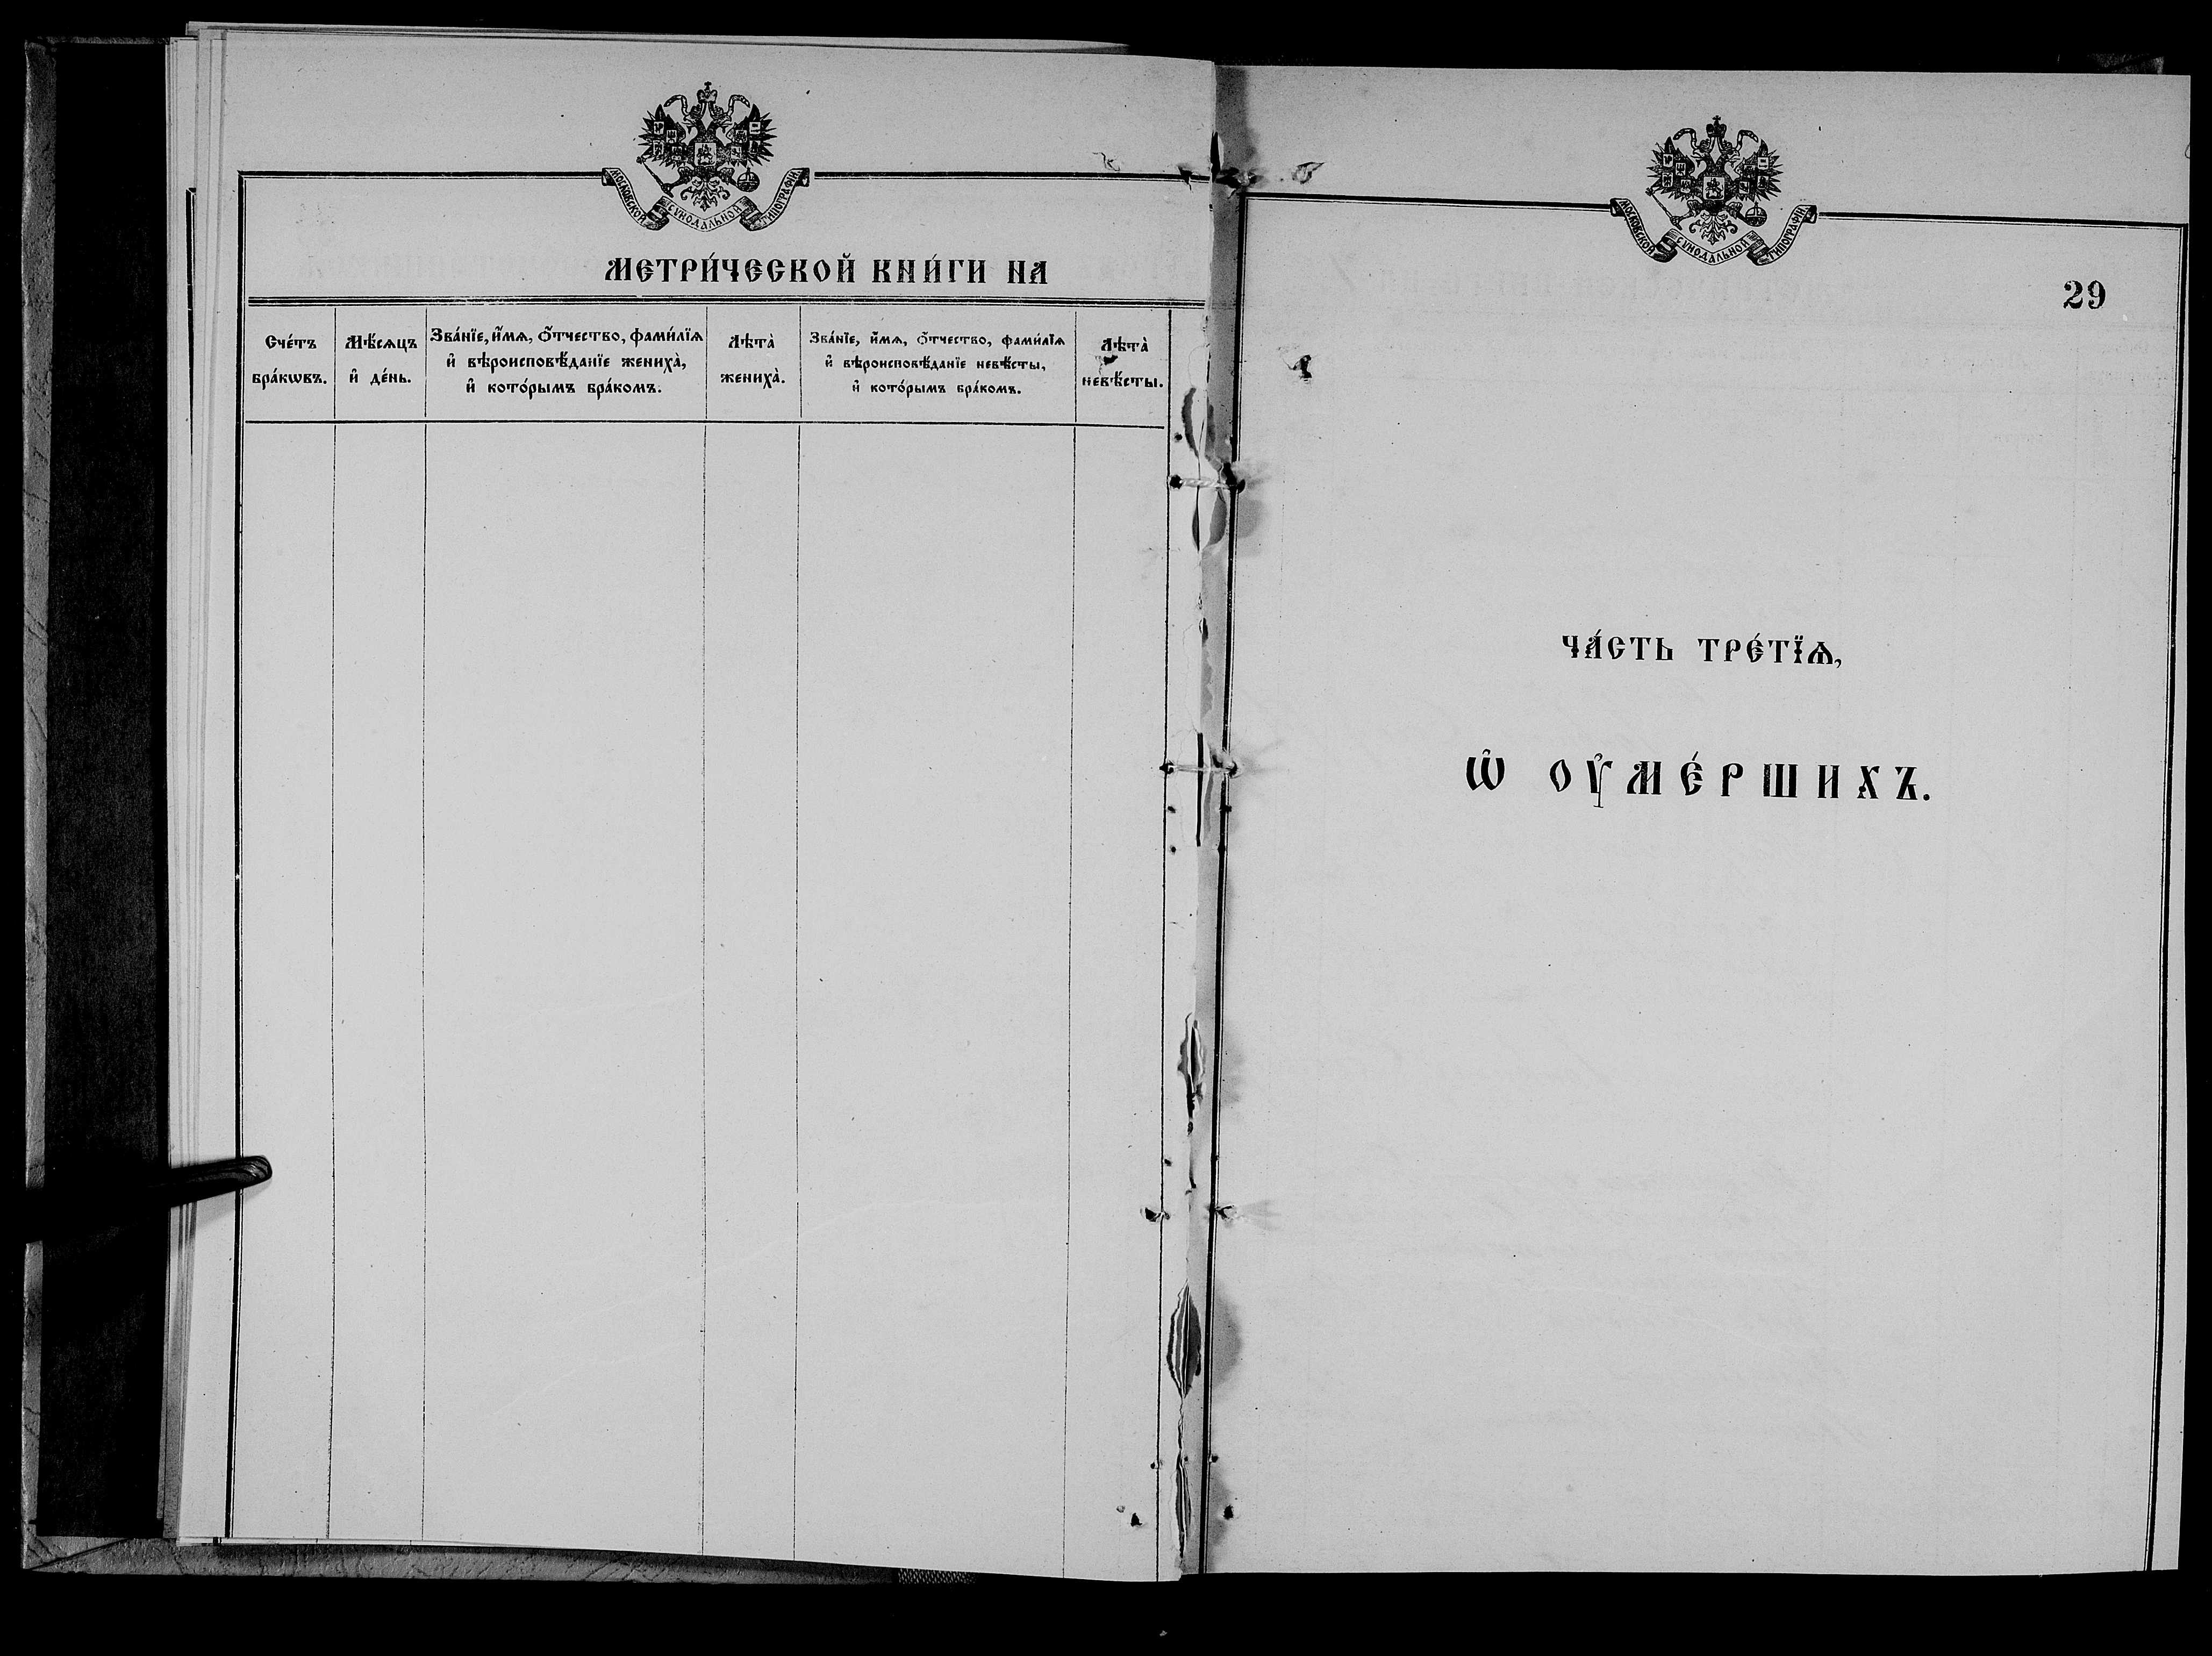 МОСКОВСКОЙ СѴНОДАЛЬНОЙ ТИПОГРАФІИ
МЕТРИ́ЧЕСКОЙ КНИ́ГИ НА
Сче́тъ
бра́кѡвъ.
Мѣ́сѧцъ
и҆ де́нь.
Зва́нїе, и҆́мѧ, ѻ҆́тчество, фами́лїѧ
и҆ вѣроисповѣ́данїе жениха̀,
и҆ кото́рымъ бра́комъ.
Лѣта̀
жениха̀.
Зва́нїе, и҆́мѧ, ѻ҆́тчество, фами́лїѧ
и҆ вѣроисповѣ́данїе невѣ́сты,
и҆ кото́рымъ бра́комъ.
Лѣта̀
невѣ́сты.
МОСКОВСКОЙ СѴНОДАЛЬНОЙ ТИПОГРАФІИ
29
ЧА́СТЬ ТРЕ́ТЇѦ,
Ѡ҆ ОУ҆МЕ́РШИХЪ.